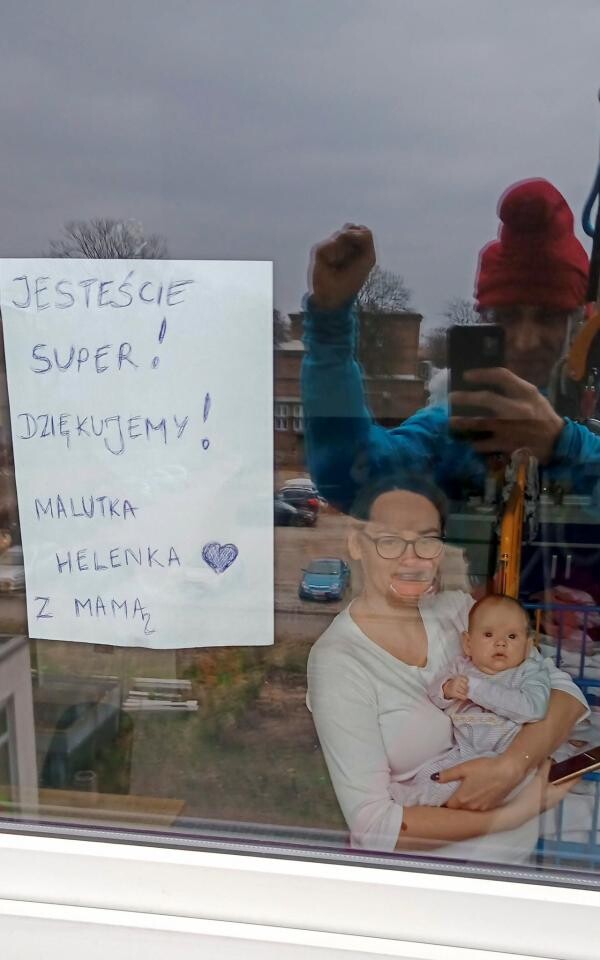 JESTEŚCIE
SUPER!
DZIĘKUJEMY!
MALUTKA
HELENKA ♥
Z MAMĄ